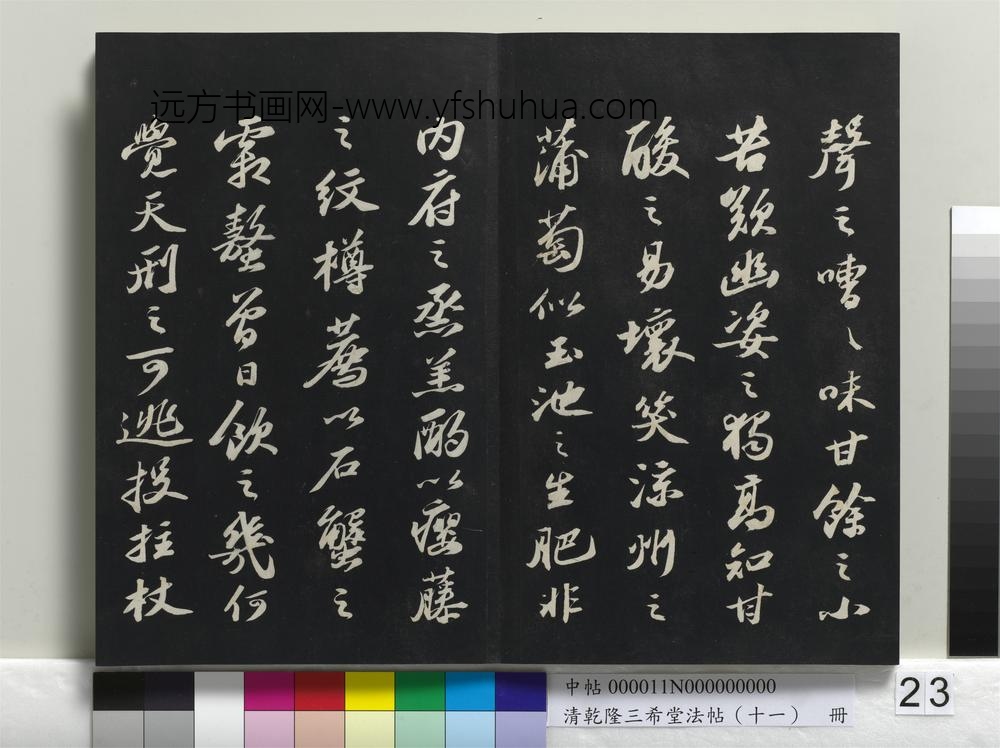 远方书画网-www.yfshuhua.com
聲之嘈〻味甘餘之小
苦歎幽姿之獨高知甘
酸之易壞笑涼州之
蒲萄似玉池之生肥非
内府之烝羔酌以癭藤
之紋樽薦以石蟹之
霜螯曾日飲之幾何
覺天刑之可逃投拄杖
中帖 000011N000000000
清乾隆三希堂法帖（十一） 冊
23